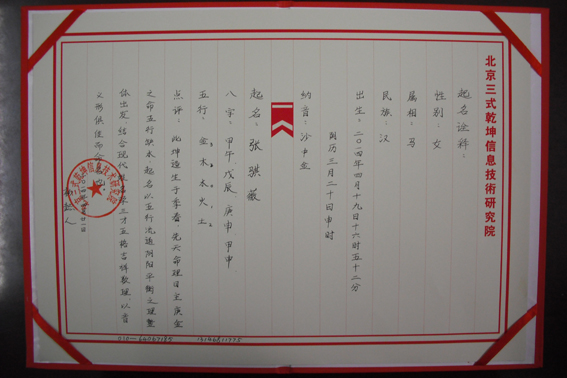 北京三式乾坤信息技術研究院
起名诠释:
性别:女
属相:马
民族:汉
出生:二〇一四年四月十九日十六时五十二分
阴历三月二十日申时
纳音:沙中金
起名:张骐薇
八字:甲午 戊辰 庚申 甲申
五行:金3 木3 水 火1 土2
点评:此坤造生于季春,先天命理日主庚金
之命五行缺水,起名以五行流通阴阳平衡之理整
体出发,结合现代 三才五格吉祥数理,以音
义形俱佳而
010—64067185